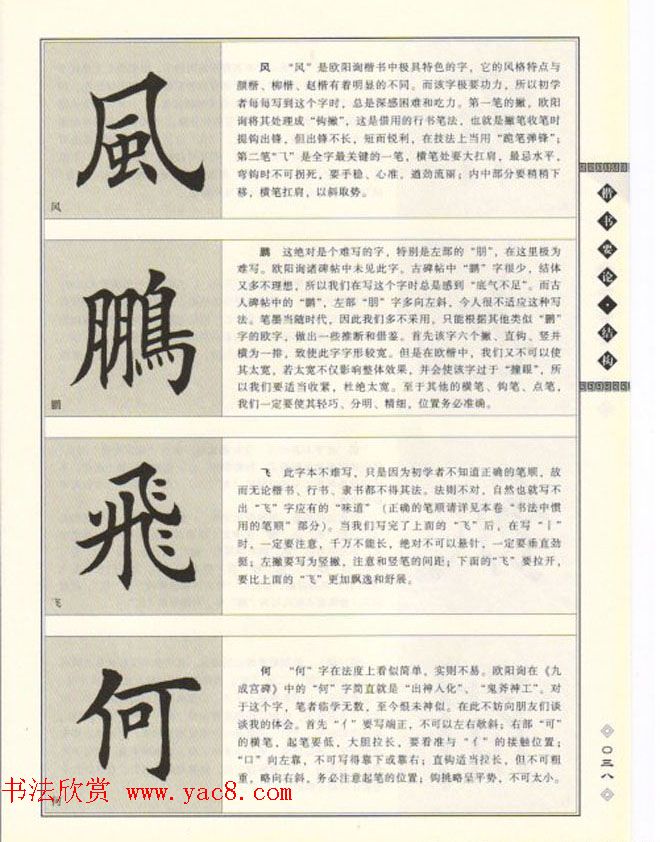 風
风
风 “风”是欧阳询楷书中极具特色的字，它的风格特点与
颜楷、柳楷、赵楷有着明显的不同。而该字极要功力，所以初学
者每每写到这个字时，总是深感困难和吃力。第一笔的撇，欧阳
询将其处理成“钩撇”，这是借用的行书笔法，也就是撇笔收笔时
提钩出锋，但出锋不长，短而锐利，在技法上当用“跪笔弹锋”；
第二笔“乁”是全字最关键的一笔，横笔处要大扛肩，最忌水平，
弯钩时不可拐死，要手稳、心准，遒劲流丽；内中部分要稍稍下
移，横笔扛肩，以斜取势。
鵬
鹏
鹏 这绝对是个难写的字，特别是左部的“朋”，在这里极为
难写。欧阳询诸碑帖中未见此字，古碑帖中“鹏”字很少，结体
又多不理想，所以我们在写这个字时总是感到“底气不足”。而古
人碑帖中的“鹏”，左部“朋”字多向左斜，今人很不适应这种写
法。笔墨当随时代，因此我们多不采用，只能根据其他类似“鹏”
字的欧字，做出一些推断和借鉴。首先该字六个撇、直钩、竖并
横为一排，致使此字字形较宽。但是在欧楷中，我们又不可以使
其太宽，若太宽不仅影响整体效果，并会使该字过于“撞眼”，所
以我们要适当收紧，杜绝太宽。至于其他的横笔、钩笔、点笔，
我们一定要使其轻巧、分明、精细，位置务必准确。
飛
飞
飞 此字本不难写，只是因为初学者不知道正确的笔顺，故
而无论楷书、行书、隶书都不得其法。法则不对，自然也就写不
出“飞”字应有的“味道”（正确的笔顺请详见本卷“书法中惯
用的笔顺”部分）。当我们写完了上面的“飞”后，在写“丨”
时，一定要注意，千万不能长，绝对不可以悬针，一定要垂直劲
挺；左撇要写为竖撇，注意和竖笔的间距；下面的“飞”要拉开，
要比上面的“飞”更加飘逸和舒展。
何
何
何 “何”字在法度上看似简单，实则不易。欧阳询在《九
成宫碑》中的“何”字简直就是“出神入化”、“鬼斧神工”。对
于这个字，笔者临学无数，至今恨未神似。在此不妨向朋友们谈
谈我的体会。首先“亻”要写端正，不可以左右欹斜；右部“可”
的横笔，起笔要低，大胆拉长，要看准与“亻”的接触位置；
“口”向左靠，不可写得靠下或靠右；直钩适当拉长，但不可粗
重，略向右斜，务必注意起笔的位置；钩挑略呈平势，不可太小。
楷书要论·结构
〇三八
书法欣赏 www.yac8.com